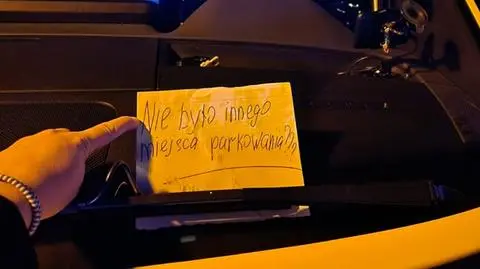 Nie było innego
miejsca parkowania??